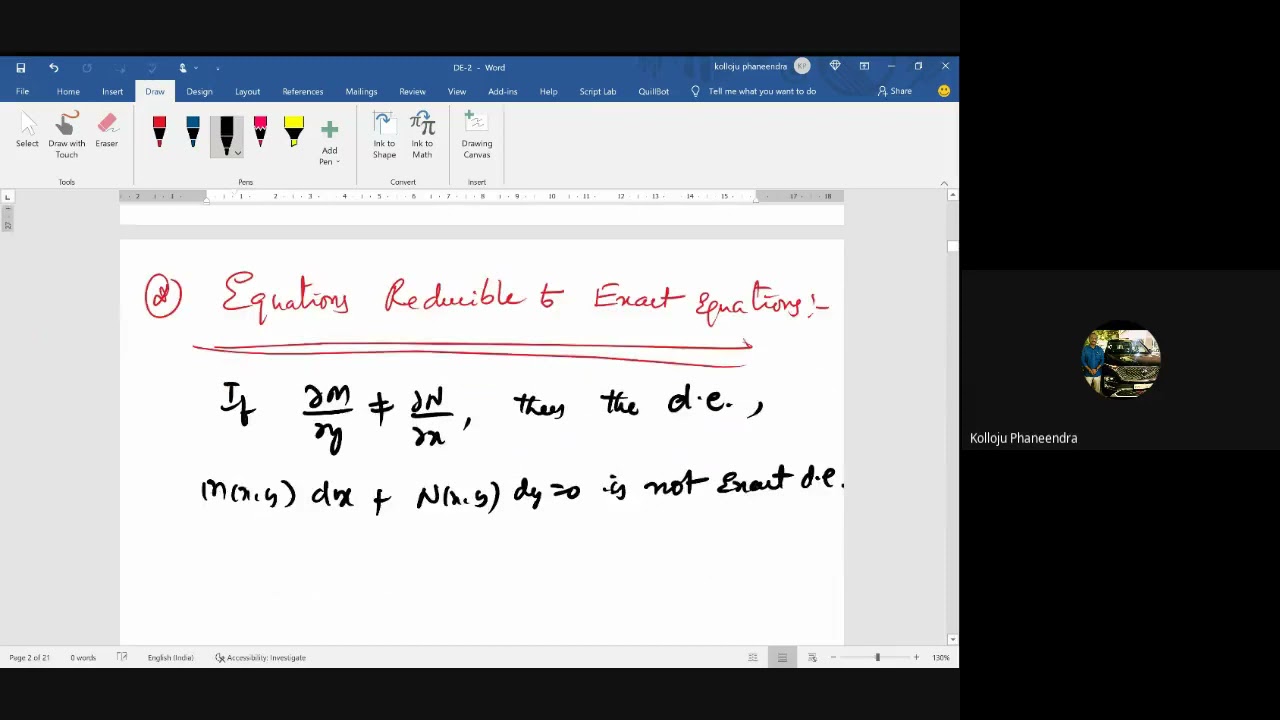 DE-2 - Word
kolloju phaneendra KP
File Home Insert Draw Design Layout References Mailings Review View Add-ins Help Script Lab QuillBot Tell me what you want to do Share
Select Draw with Touch Eraser Add Pen Ink to Shape Ink to Math Drawing Canvas
Tools Pens Convert Insert
2 1 1 2 3 4 5 6 7 8 9 10 11 12 13 14 15 17 18
Equations Reducible to Exact Equations:-
If ∂M/∂y ≠ ∂N/∂x, then the d.e.,
M(x,y) dx + N(x,y) dy=0 is not Exact d.e.
Kolloju Phaneendra
Page 2 of 21 0 words English (India) Accessibility: Investigate 130%